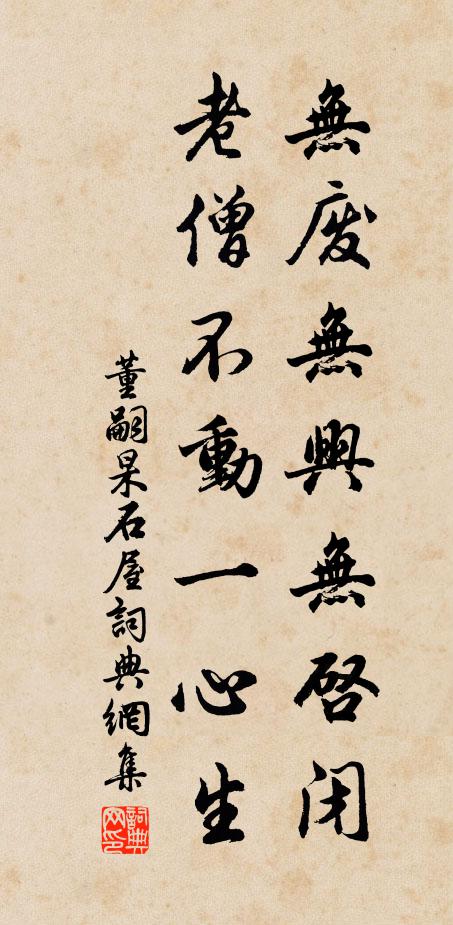 無廢無興無啓闭
老僧不動一心生
董嗣杲石屋詞典網集
詞典網印